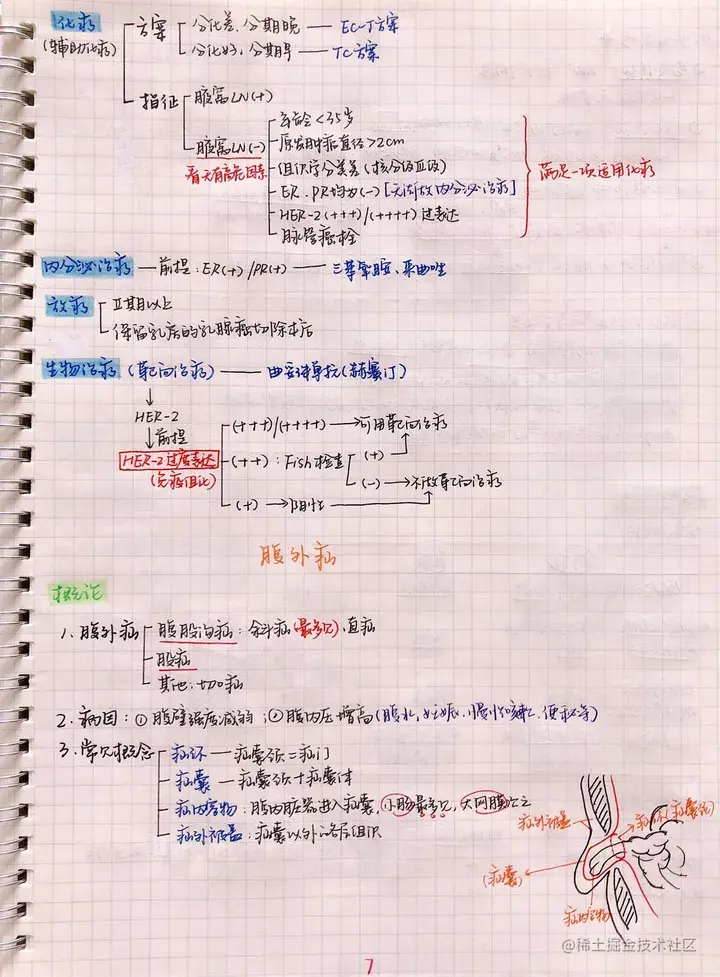 化疗 方案 分化差、分期晚 — EC-T方案
(辅助化疗) 分化好、分期早 — TC方案
指征 腋窝LN(+)
腋窝LN(-) 年龄<35岁
看无有高危因素 原发肿瘤直径>2cm
组织学分类差(核分级Ⅲ级)
ER、PR均为(-)[无法做内分泌治疗] 满足一项适用化疗
HER-2(+++)/(++++)过表达
脉管癌栓
内分泌治疗 — 前提:ER(+)/PR(+) — 三苯氧胺、来曲唑
放疗 Ⅲ期以上
保留乳房的乳腺癌切除术后
生物治疗(靶向治疗) — 曲妥珠单抗(赫赛汀)
HER-2
前提 (+++)/(++++)→可用靶向治疗
HER-2过度表达 (++):Fish检查 (+)
(免疫组化) (-)→不做靶向治疗
(+)→阴性
腹外疝
概论
1.腹外疝 腹股沟疝:斜疝(最多见)、直疝
股疝
其他:切口疝
2.病因:①腹壁强度减弱;②腹内压增高(腹水,妊娠,慢性咳嗽,便秘等)
3.常见概念 疝环 — 疝囊颈=疝门
疝囊 — 疝囊颈+疝囊体
疝内容物:腹内脏器进入疝囊,小肠最多见,大网膜次之
疝外被盖:疝囊以外的各层组织
疝外被盖 疝环(疝囊颈)
(疝囊)
疝内容物
@稀土掘金技术社区
7